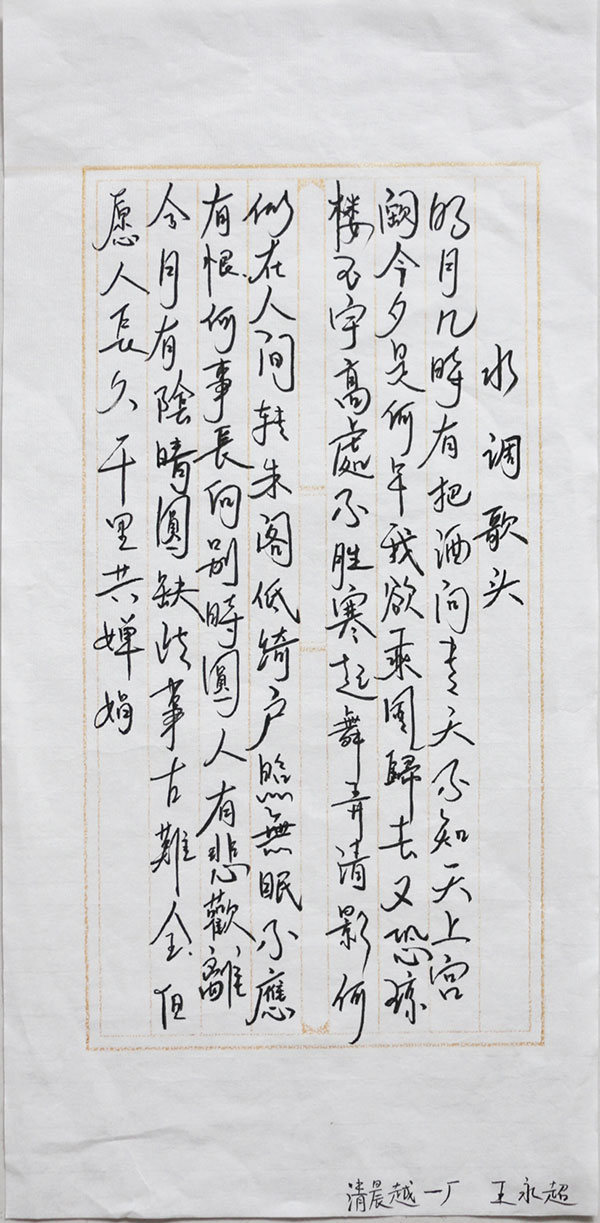 水调歌头
明月几時有把酒问青天不知天上宫
阙今夕是何年我欲乘風歸去又恐琼
楼玉宇高處不胜寒起舞弄清影何
似在人间转朱阁低绮户照無眠不應
有恨何事長向别時圓人有悲歡離
合月有陰晴圓缺此事古難全但
愿人長久千里共婵娟
清晨越一厂 王永超